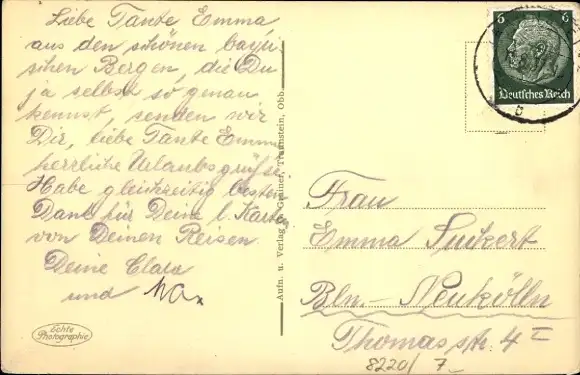 Liebe Tante Emma,
aus den schönen bayri-
schen Bergen, die Du
ja selbst so genau
kennst, senden wir
Dir, liebe Tante Emma
herrliche Urlaubsgrüße.
Habe gleichzeitig besten
Dank für Deine l. Karten
von Deinen Reisen.
Deine Clara
und Max
Echte
Photographie
Aufn. u. Verlag Greiner, Traunstein, Obb.
6 6
Deutsches Reich
b
Frau
Emma Suckert
Bln-Neukölln
Thomas str. 4 I
8220/ 7.-